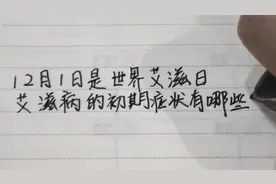 12月1日是世界艾滋日
艾滋病的初期症状有哪些